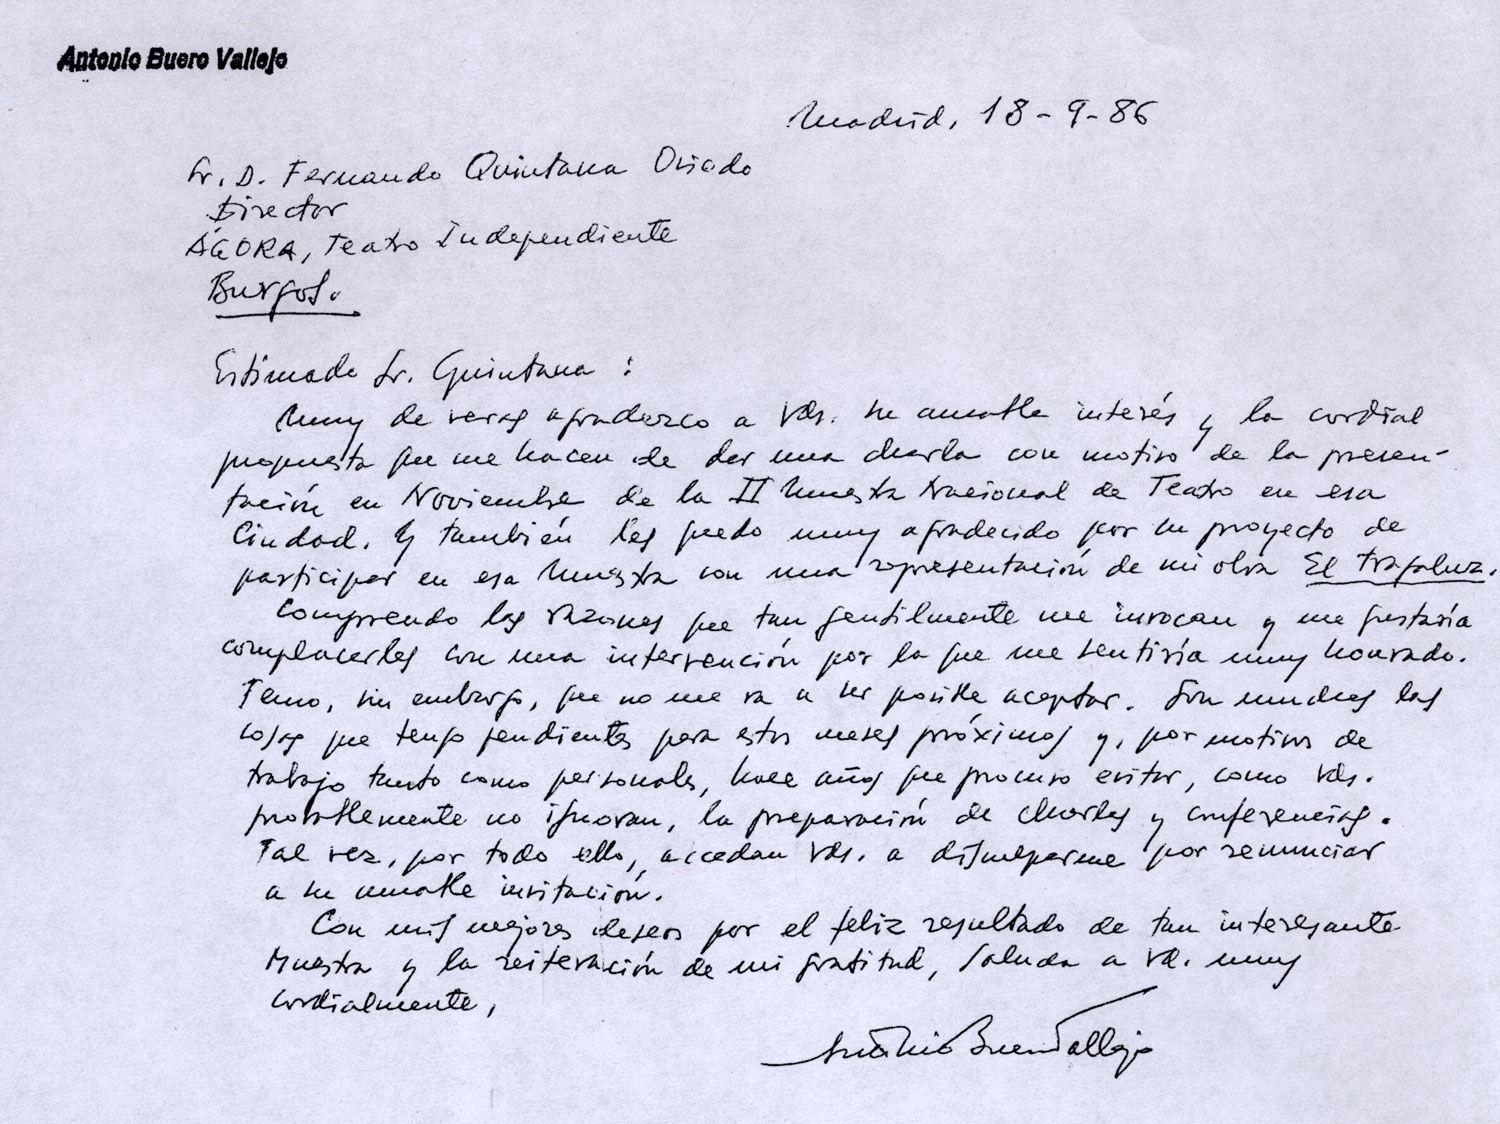 Antonio Buero Vallejo
Madrid, 18-9-86
Sr. D. Fernando Quintana
Director
ÁGORA, Teatro Independiente
Burgos.
Estimado Sr. Quintana:
Muy de veras agradezco a Vds. su amable interés y la cordial
propuesta que me hacen de dar una charla con motivo de la presen-
tación en Noviembre de la II Muestra Nacional de Teatro en esa
Ciudad. Y también les quedo muy agradecido por su proyecto de
participar en esa Muestra con una representación de mi obra El tragaluz.
Comprendo las razones que tan gentilmente me invocan y me gustaría
complacerles con una intervención por la que me sentiría muy honrado.
Temo, sin embargo, que no me va a ser posible aceptar. Son muchas las
cosas que tengo pendientes para estos meses próximos y, por motivos de
trabajo tanto como personales, hace años que procuro evitar, como Vds.
probablemente no ignoran, la preparación de charlas y conferencias.
Tal vez, por todo ello, accedan Vds. a disculparme por renunciar
a su amable invitación.
Con mis mejores deseos por el feliz resultado de tan interesante
Muestra y la reiteración de mi gratitud, saluda a Vd. muy
cordialmente,
Antonio Buero Vallejo